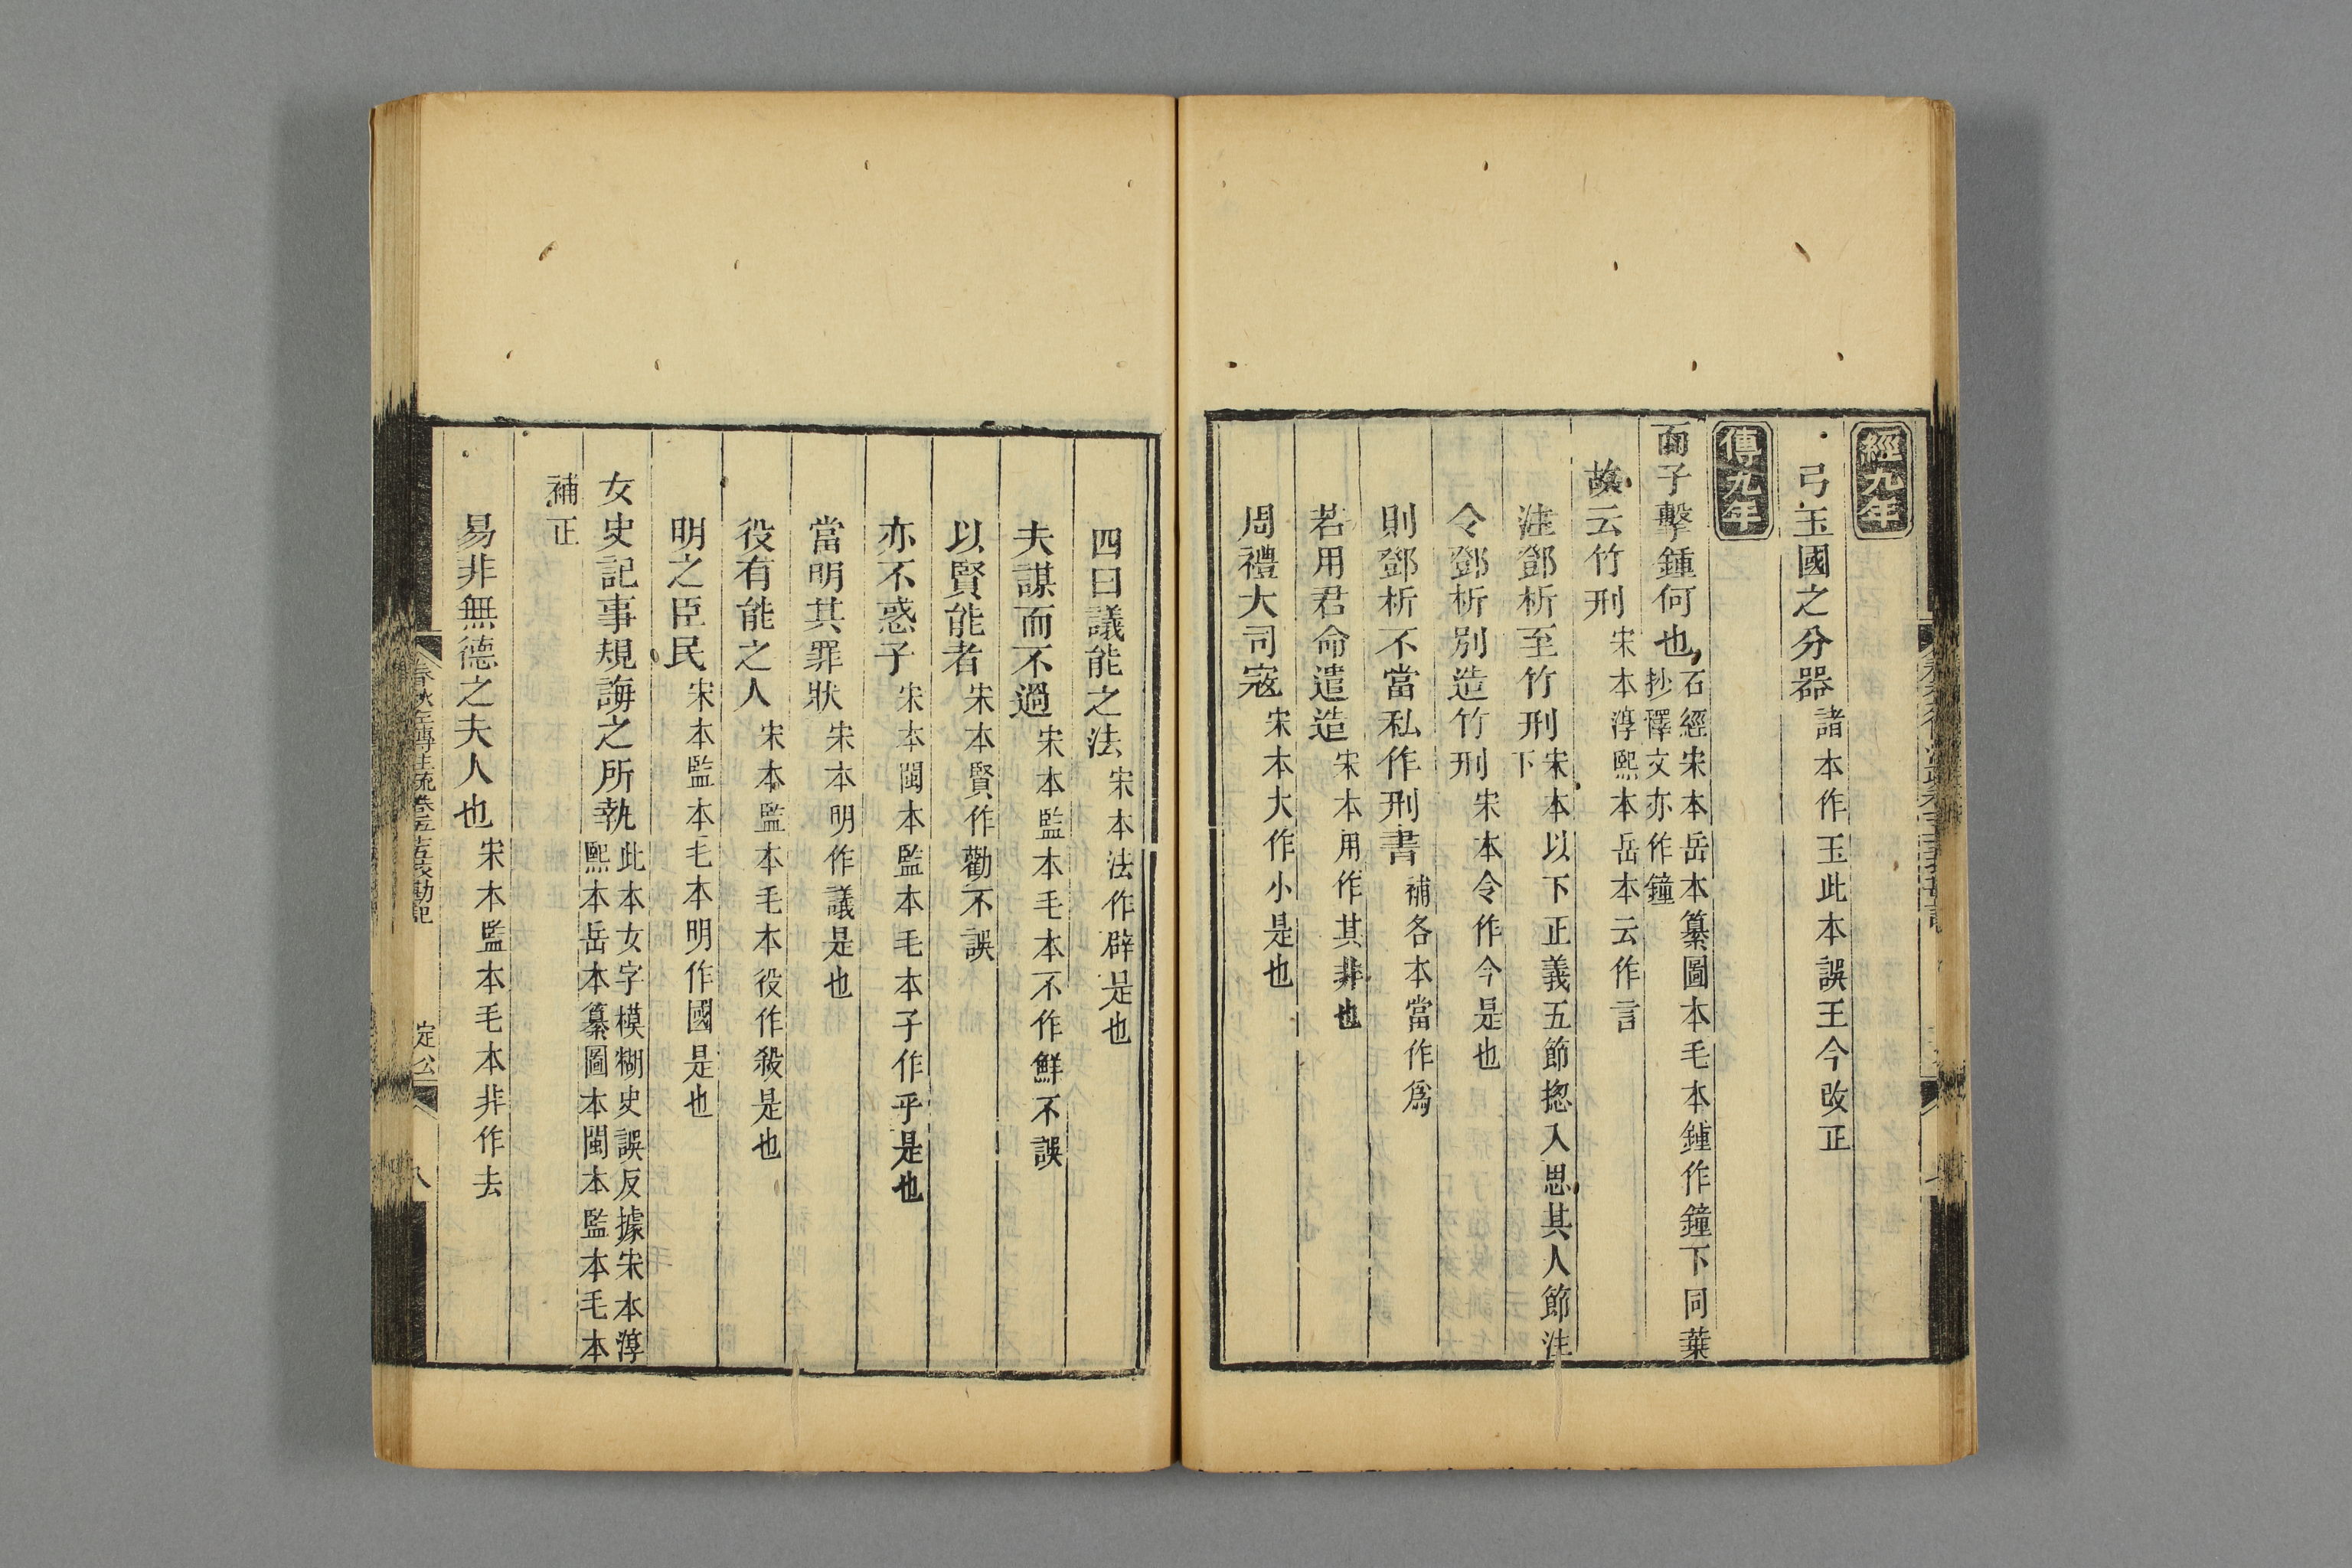 經九年
弓玉國之分器諸本作玉此本誤王今改正
傳九年
面子擊鍾何也石經宋本岳本纂圖本毛本鍾作鐘下同葉抄釋文亦作鐘
故云竹刑宋本淳熙本岳本云作言
注鄧析至竹刑宋本以下正義五節揔入思其人節注下
令鄧析別造竹刑宋本令作今是也
則鄧析不當私作刑書補各本當作爲
若用君命遣造宋本用作其非也
周禮大司寇宋本大作小是也
四曰議能之法宋本法作辟是也
夫謀而不過宋本監本毛本不作鮮不誤
以賢能者宋本賢作勸不誤
亦不惑子宋本閩本監本毛本子作乎是也
當明其罪狀宋本明作議是也
役有能之人宋本監本毛本役作殺是也
明之臣民宋本監本毛本明作國是也
女史記事規誨之所執此本女字模糊史誤反據宋本淳熙本岳本纂圖本閩本監本毛本
補正
易非無德之夫人也宋本監本毛本非作去
春秋左傳注疏卷五十五挍勘記
定公
八